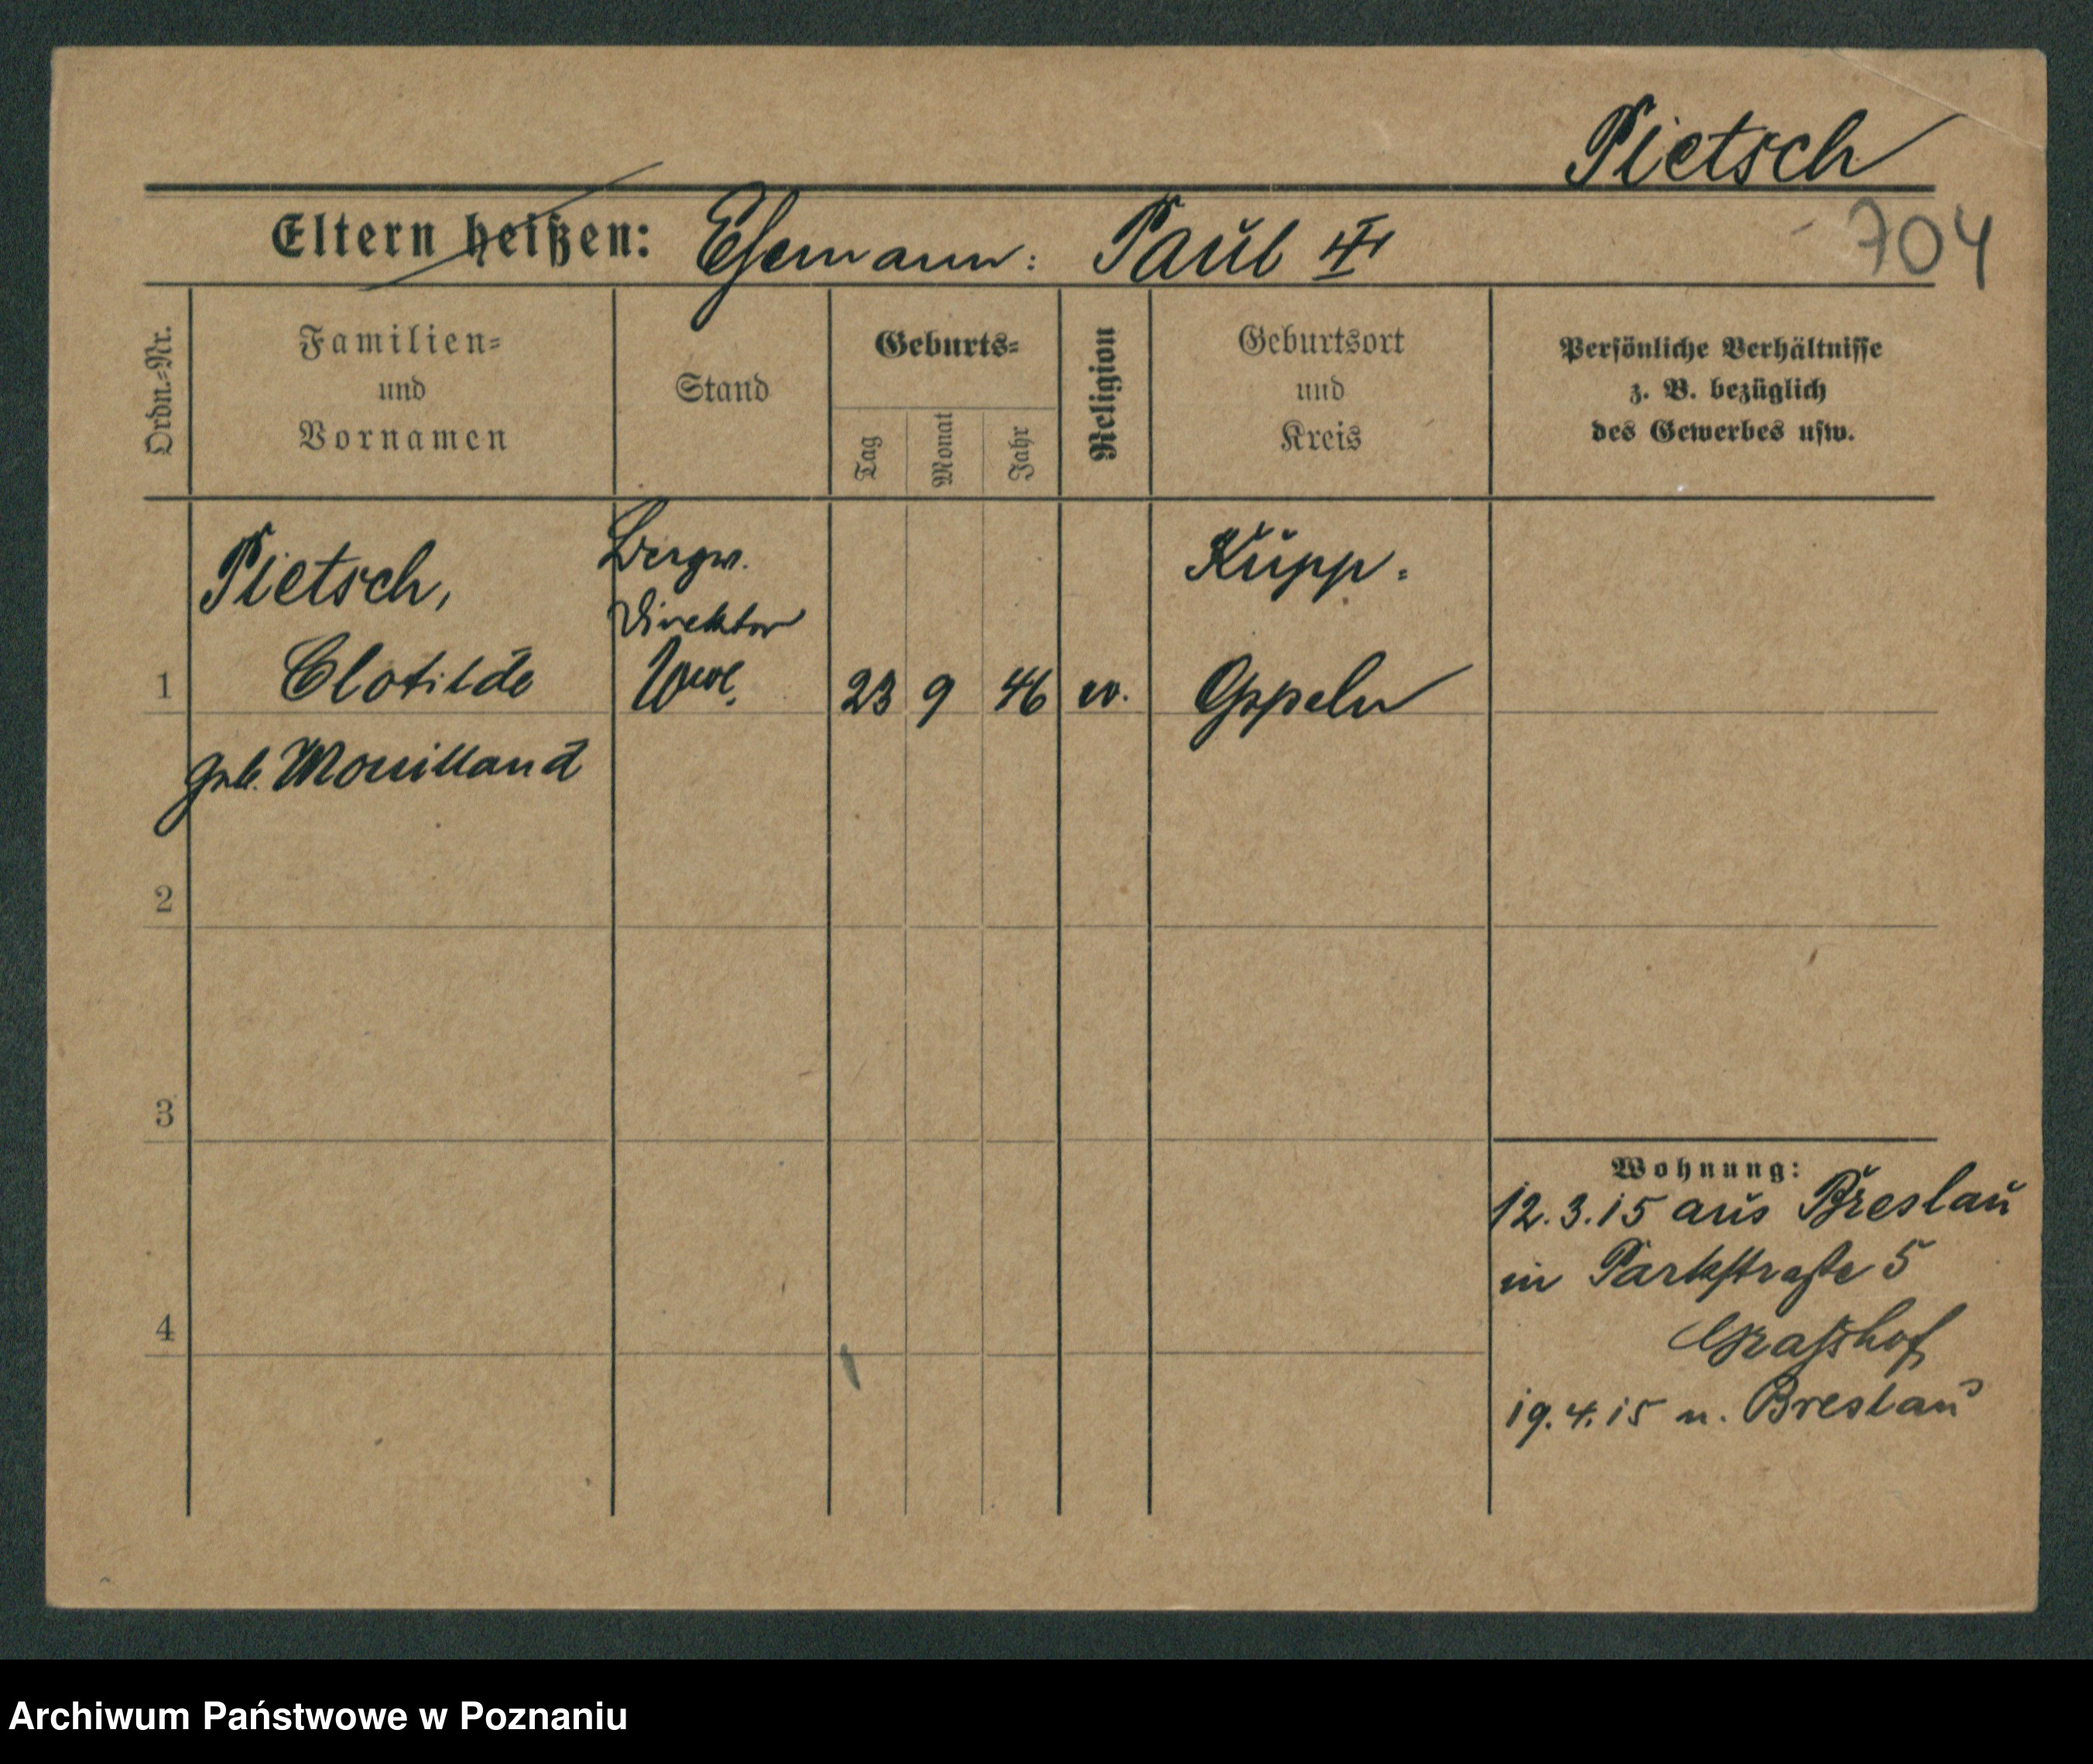 Pietsch
Eltern heißen: Ehemann: Paul III
704
Ordn.-Nr.
Familien-
und
Vornamen
Stand
Geburts-
Tag
Monat
Jahr
Religion
Geburtsort
und
Kreis
Persönliche Verhältnisse
z. B. bezüglich
des Gewerbes usw.
Pietsch,
Bergw.
Direktor
Kupp.
1 Clotilde Wwe. 23 9 46 ev. Oppeln
geb. Mouilland
2
3
4
Wohnung:
12.3.15 aus Breslau
in Parkstraße 5
Graßhof
19.4.15 n. Breslau
Archiwum Państwowe w Poznaniu